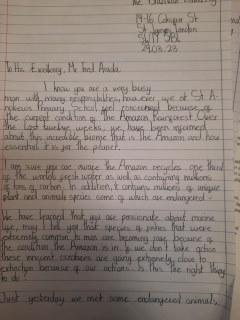 The Brazilian Embassy
14-16 Cockspur St
St James's, London
SW1Y 5BL
29.03.23
To His Excellency, Mr Fred Arruda,
I know you are a very busy
man with many responsibilities, however we at St A-
ndrews Primary School feel concerned because of
the current condition of the Amazon Rainforest. Over
the last twelve weeks, we have been informed
about this incredible biome that is the Amazon and how
essential it is for the planet.
I am sure you are aware the Amazon recycles one third
of the worlds fresh water as well as containing millions
of tons of carbon. In addition, it contains millions of unique
plant and animals species some of which are endangered.
We have learned that you are passionate about marine
life, may I tell you that species of fishes that were
extremely common to man are becoming rare because of
the condition the Amazon is in. If we don't take action
these innocent creatures are going extremely close to
extinction because of our actions. Is this the right thing
to do?
Just yesterday we met some endangered animals